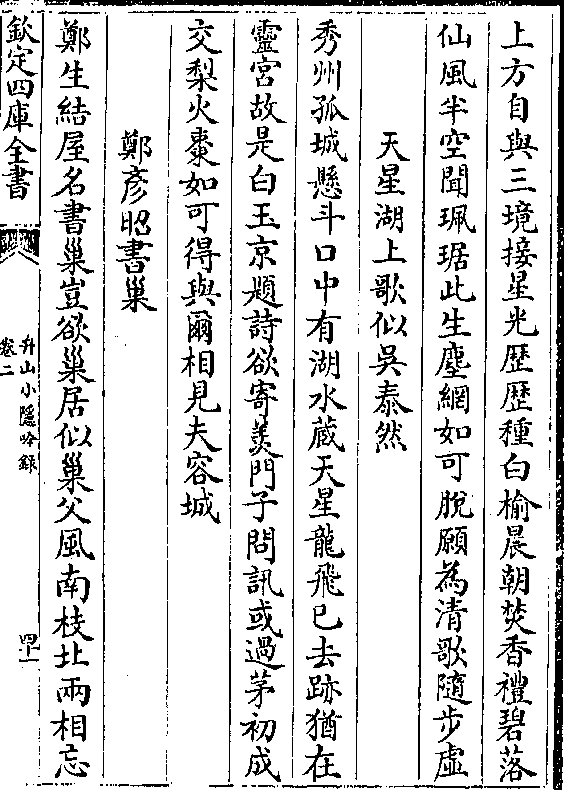 上方自與三境接星光歴歴種白榆晨朝焚香禮碧落
仙風半空聞珮琚此生塵網如可脫願為清歌隨步虛
天星湖上歌似吳泰然
秀州孤城懸斗口中有湖水蔵天星龍飛已去跡猶在
靈宮故是白玉京題詩欲寄羨門子問訊或過茅初成
交梨火棗如可得與爾相見夫容城
鄭彥昭書巢
鄭生結屋名書巢豈欲巢居似巢父風南枝北兩相忘
欽定四庫全書
卷二
升山小隱吟録
四十一